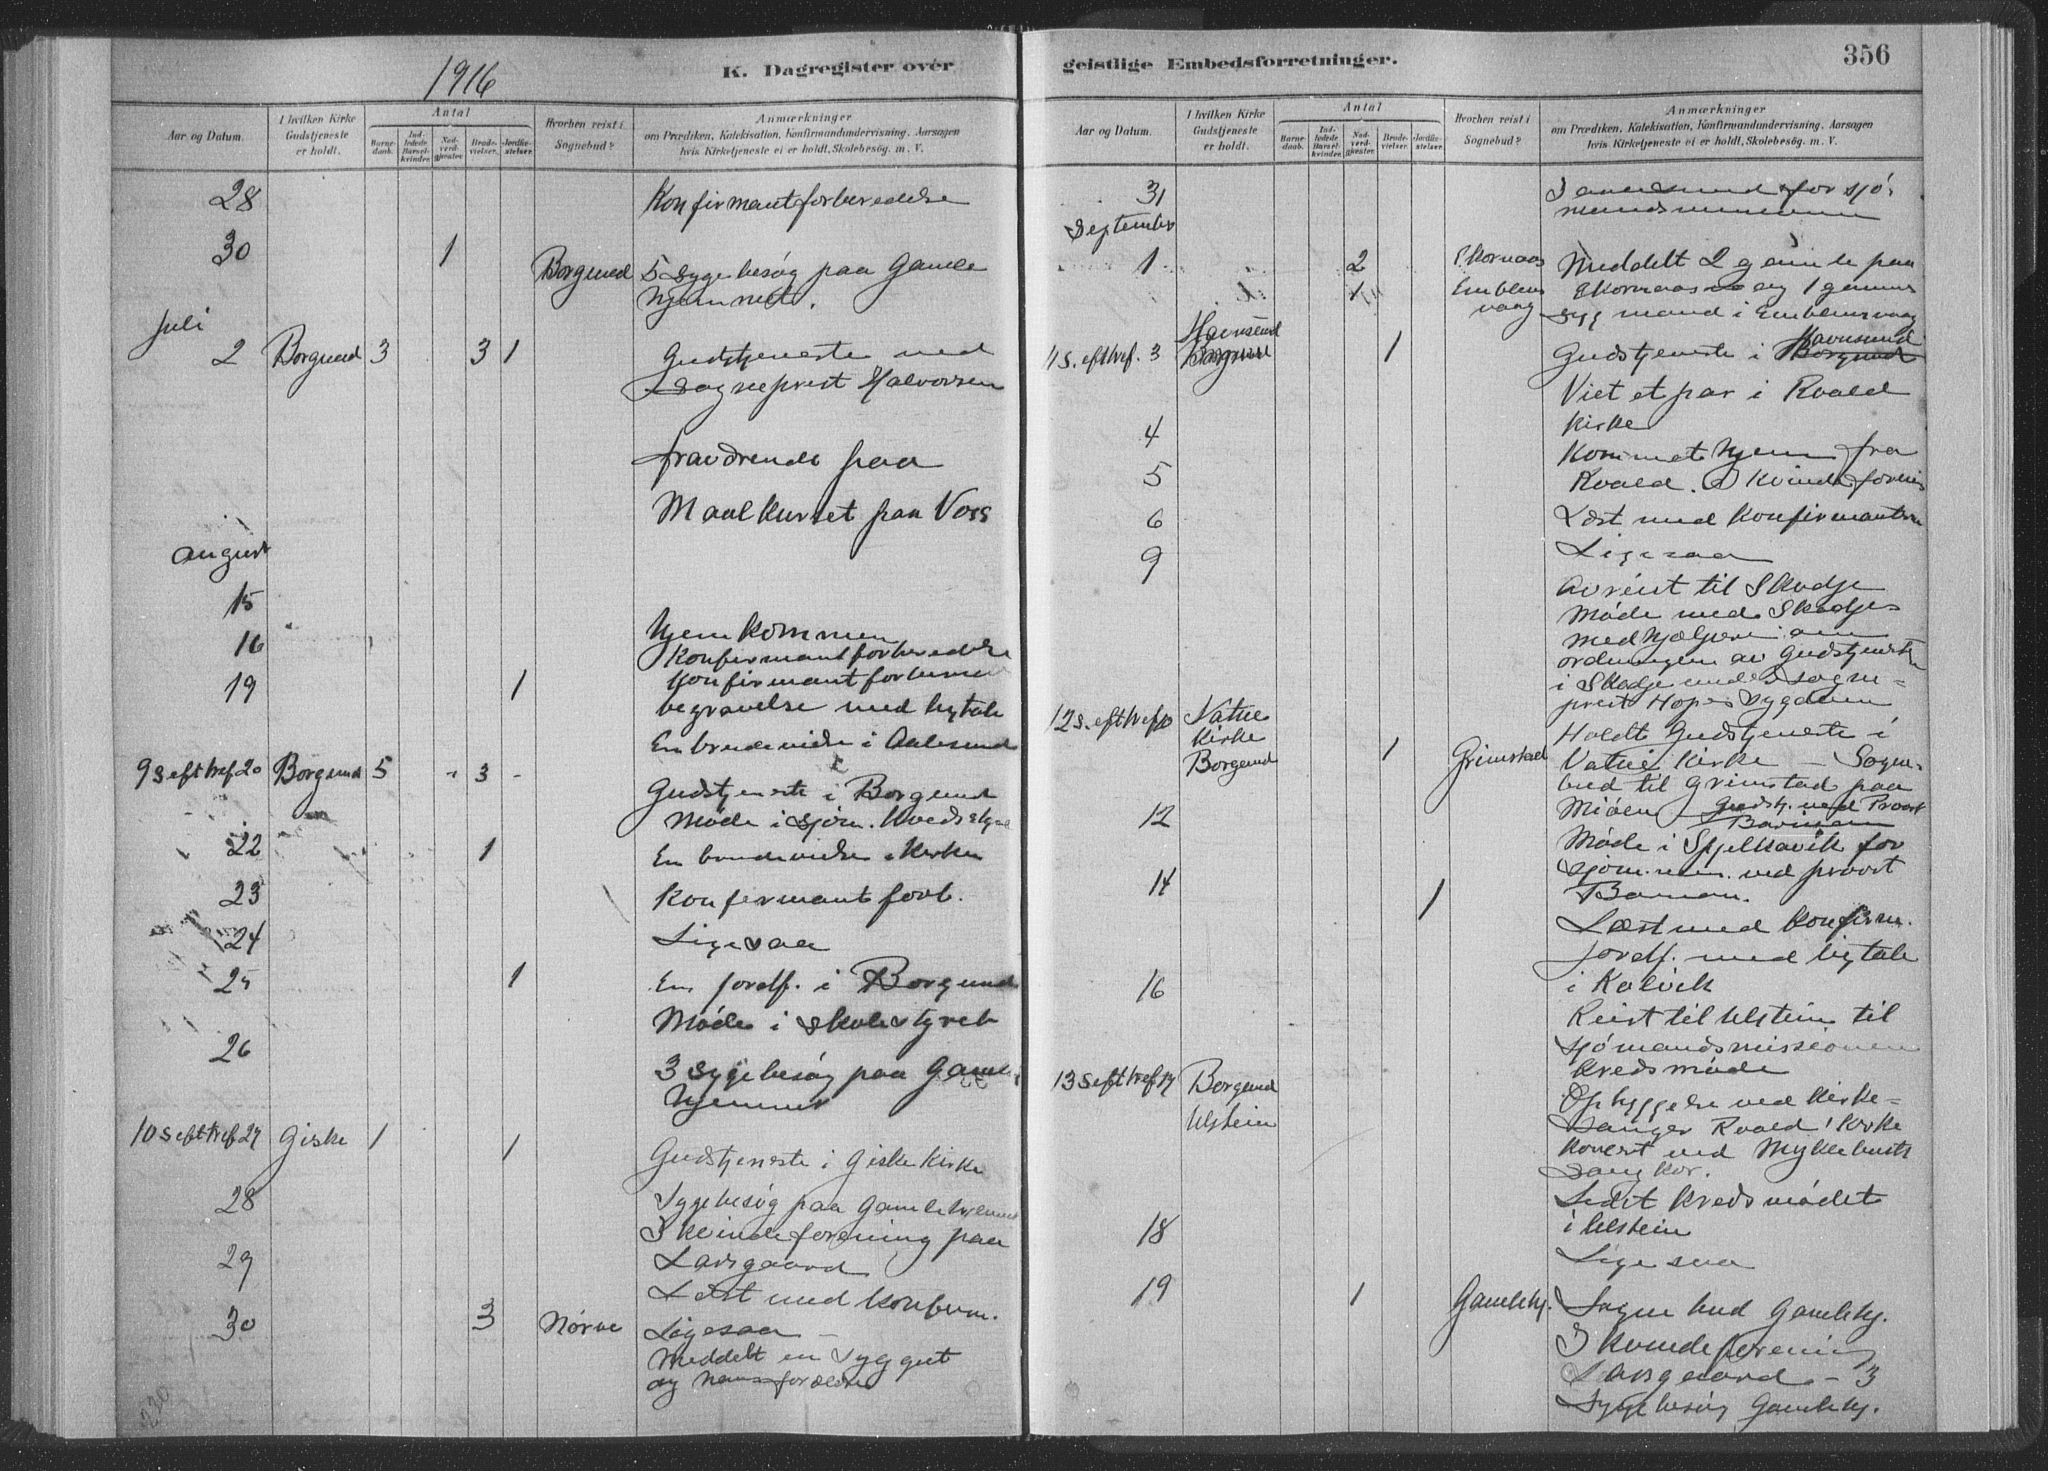 1916
K. Dagregister over
Aar og Datum.
I hvilken Kirke Gudstjeneste er holdt.
Antal
Barnedaab.
Indledede Barselkvinder.
Nadverdgjester.
Brudevielser.
Jordfæstelser.
Hvorhen reist i Sognebud?
Anmærkninger
om Prædiken, Katekisation, Konfirmandundervisning, Aarsagen
hvis Kirketjeneste ei er holdt, Skolebesøg. m. V.
28 Konfirmantforberedelse
30 1 Borgund 5 sygebesøg paa Gamle
hjemmet.
Juli
2 Borgund 3 3 1 Gudstjeneste ved
Sogneprest Halvorsen
fraværende paa
Maalkurset paa Voss
august
15
16 Hjemkommen
Konfirmantforberedelse
19 1 Konfirmantforbered
begravelse med liktale
En brudevielse i Aalesund
9 S eft tref 20 Borgund 5 3
Gudstjeneste i Borgund
Møde i sjøm. Kredsstyre
22 1 En brudevielse i Kirken
23 Konfirmant forb.
24 Ligesaa
25 1 En jordf. i Borgund
Møde i skolestyret
26
3 sygebesøg paa Gamle
hjemmet
10 S eft tref 27 Giske 1 1 Gudstjeneste i Giske Kirke
28 Sygebesøg paa Gamlehjemmet
I Kvindeforening paa
29 Larsgaard
Læst med Konfirm.
30 3 Nørve Ligesaa
Meddelt en syg gut
og hans forældre
geistlige Embedsforretninger.
356
Aar og Datum.
I hvilken Kirke Gudstjeneste er holdt.
Antal
Barnedaab.
Indledede Barselkvinder.
Nadverdgjester.
Brudevielser.
Jordfæstelser.
Hvorhen reist i Sognebud?
Anmærkninger
om Prædiken, Katekisation, Konfirmandundervisning, Aarsagen
hvis Kirketjeneste ei er holdt, Skolebesøg. m. V.
31 for sjø-
September
1 2 Ekornaas Meddelt 2 gamle paa
1 Emblemsvaag Ekornaas og 1 gammel
syg mand i Emblemsvaag
Havnsund Havnsund
11 S. eft tref. 3 Borgund 1 Gudstjeneste i Borgund
Viet et par i Roald
Kirke
4 Kommet hjem fra
5 Roald. I Kvindeforening
6 Læst med Konfirmanterne
9 Ligesaa
Avreist til Skodje
Møde med Skodje
medhjælpere om
ordningen av Gudstjenesten
i Skodje under sogne=
prest Hopes sygdom
12 S. eft tref 10 Vatne
Kirke
Borgund 1 Grimstad Holdt Gudstjeneste i
Vatne Kirke - Sogne-
bud til Grimstad paa
Gudstj. ved Provst
12 Møde i Spjelkavik for
sjøm. ved provst
14 1
Læst med Konfirm.
Jordf. med liktale
16 i Kalvik
Reist til Ulstein til
sjømandsmissionens
Kredsmøde
13 S eft tref 17 Borgund
Ulstein Opbyggelse ved Kirke=
sanger Roald i Kirke
Konsert ved Myklebusts
sangkor.
Ledet Kredsmødet
18 i Ulstein
Ligesaa
19 1 Gamlehj. Sogne bud Gamlehj.
I Kvindeforening
Larsgaard - 3
Sygebesøg Gamlehj.